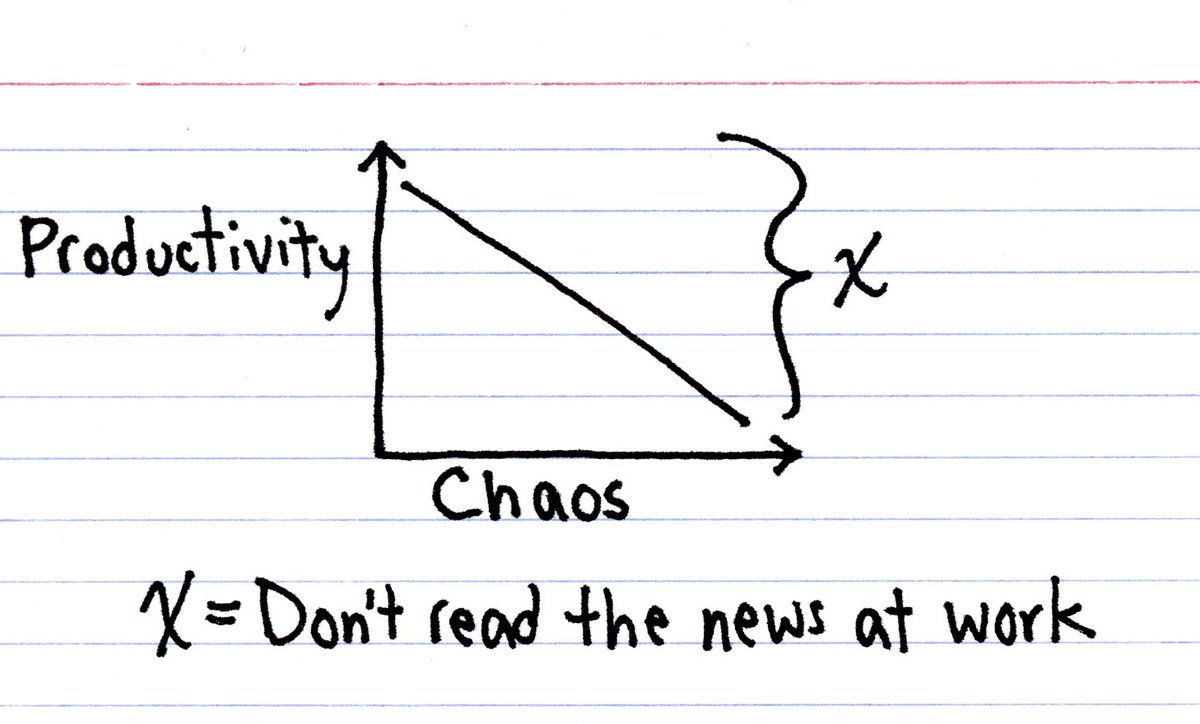 Productivity
X
Chaos
X = Don't read the news at work